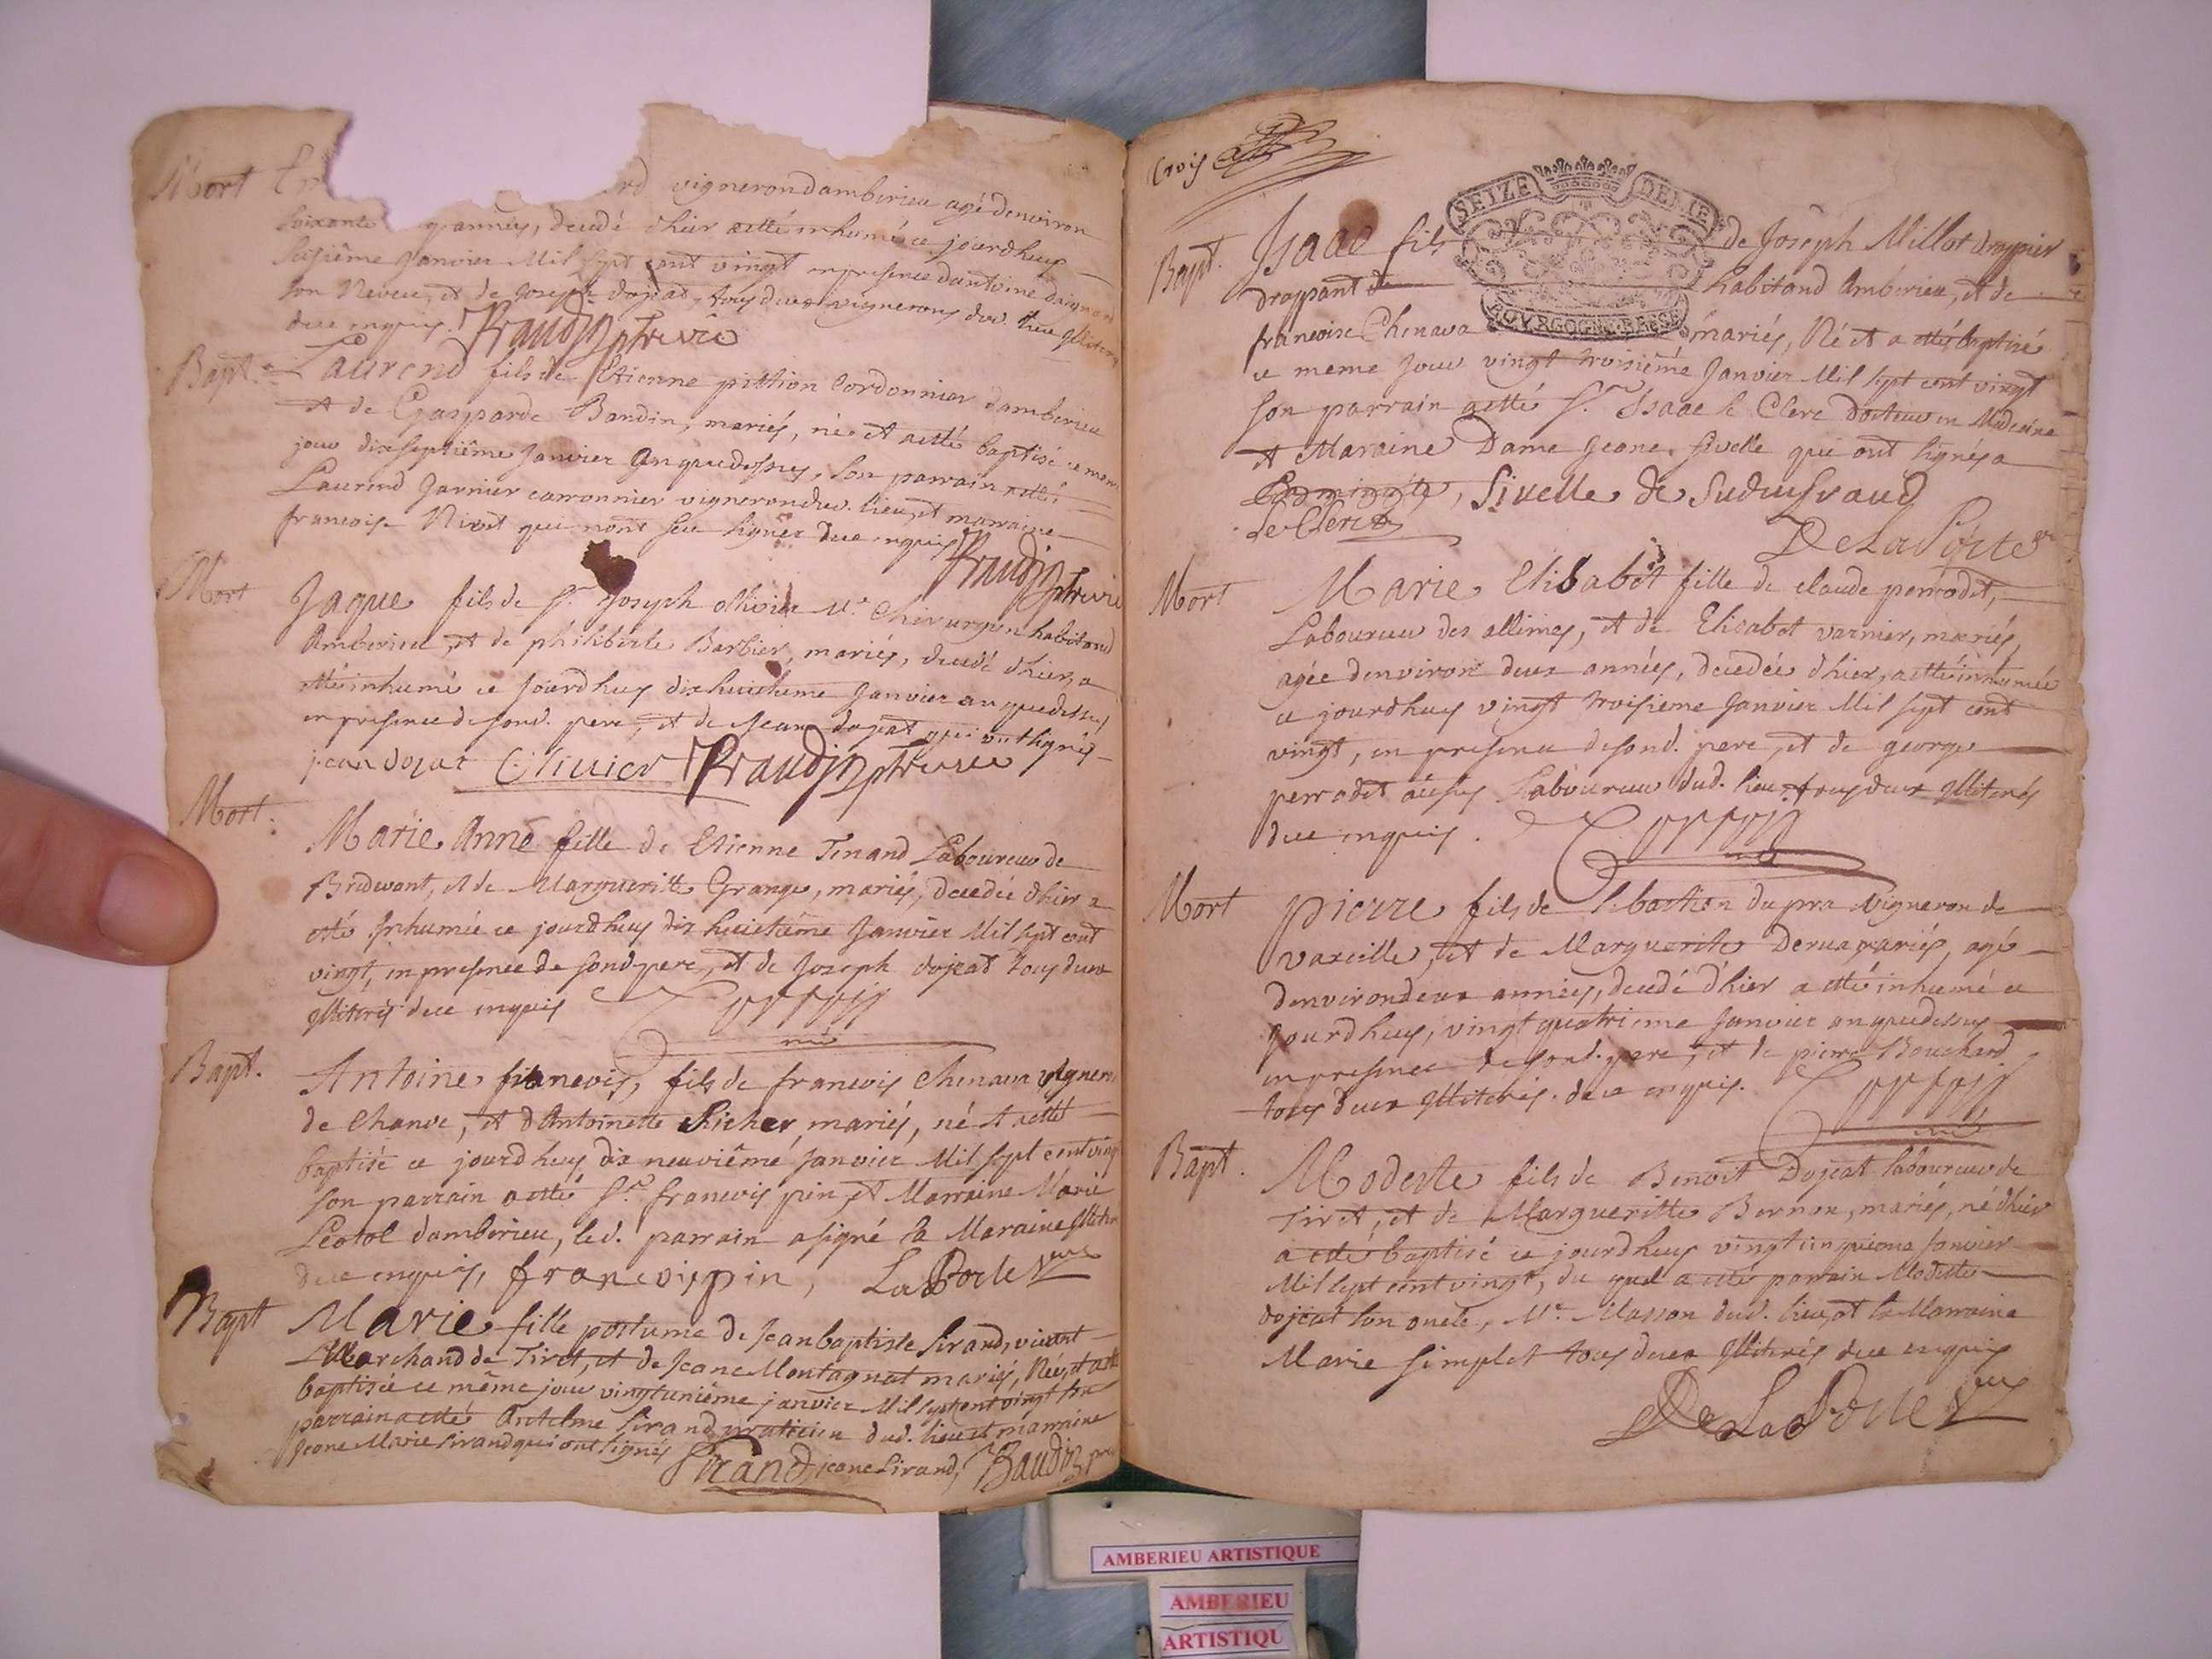 Mort
vignerond amberieu agé denviron
soixante années, decedé d'hier a esté inhumé ce jourdhuy
seisième Janvier Mil sept cent vingt en presence dantoine
son Neveu, et de Joseph dojat, tous deux vignerons dud. lieu Illiterés
deue enquis.
Bapt. Laurend fils de Etienne pittion Cordonnier damberieu
et de Gasparde Bandin, mariés, né et a esté baptisé ce meme
jour dix septième Janvier an que dessus, son parrain a esté
Laurend Garnier carronnier vigneron dud. lieu, et marraine
francoise Nivet qui n'ont sceu signer deue enquis
Mort Jaque fils de Sr. Joseph ollivier Me. Chirurgien habitand
Amberieu, et de philiberte Barbier, mariés, decedé d'hier, a
esté inhumé ce jourdhuy dix huictième Janvier an que dessus
en presence de sond. pere, et de Jean dojat qui ont signés
jean dojat Olivier
Mort. Marie Anne fille de Etienne Tenand Laboureur de
Bredevant, et de Margueritte Grange, mariés, decedée d'hier a
esté Inhumée ce jourdhuy dix huictième Janvier Mil sept cent
vingt, en presence de sond pere, et de Joseph dojeat tous deux
Illiterés deue enquis
Bapt. Antoine francois, fils de francois Chenava vigneron
de Chanve, et d'Antoinette Richer mariés, né et a esté
baptisé ce jourdhuy dix neuvième Janvier Mil sept cent vingt
son parrain a esté Sr. francois pin, et Marraine Marie
Leotol damberieu, led. parrain a signé la Maraine Illiter
deue enquis, francois pin, LaPorte
Bapt Marie fille postume de Jean baptiste Sirand, vivant
Marchand de Tiret, et de Jeane Montagnat mariés, Née, et a esté
baptisée ce même jour vingt unième janvier Mil sept cent vingt son
parrain a esté Antelme Sirand praticien dud. lieu et marraine
Jeane Marie Sirand qui ont signés
Sirand jeane Sirand, Baudin
Trois
SEIZE DENIE
BOURGOGNE BRESSE
Bapt. Isaac fils de Joseph Millot drappier
drappant habitand Amberieu, et de
francoise Chenava mariés, Né et a esté baptisé
ce meme jour vingt troisième Janvier Mil sept cent vingt
son parrain a esté Sr. Isaac le Clerc docteur en Medecine
et Maraine Dame Jeane Sivelle qui ont signés a
Sivelle de
Le Clerc
De LaPorte
Mort Marie Elisabet fille de claude perrodet,
Laboureur des allimes, et de Elisabet varnier, mariés,
agée denviron deux années, decedée d'hier, a esté inhumée
ce jourdhuy vingt troisieme Janvier Mil sept cent
vingt, en presence de sond. pere, et de george
perrodet aussy Laboureur dud. lieu tous deux Illiterés
deue enquis.
Mort Pierre fils de Sebastien dupra vigneron de
vareille, et de Marguerite Derua mariés, agé
denviron deux années, decedé d'hier a esté inhumé ce
jourdhuy, vingt quatrieme Janvier an que dessus
en presence de sond. pere, et de pierre Bouchard
tous deux Illiterés. deue enquis.
Bapt. Modeste fils de Benoit Dojeat laboureur de
Tiret, et de Margueritte Bernon, mariés, né d'hier
a esté baptisé ce jourdhuy vingt cinquieme Janvier
Mil sept cent vingt, du quel a esté parrain Modeste
dojeat son oncle, Me. Masson dud. lieu, et la Marraine
Marie simplet tous deux Illiterés deue enquis
De LaPorte
AMBERIEU ARTISTIQUE
AMBERIEU
ARTISTIQU